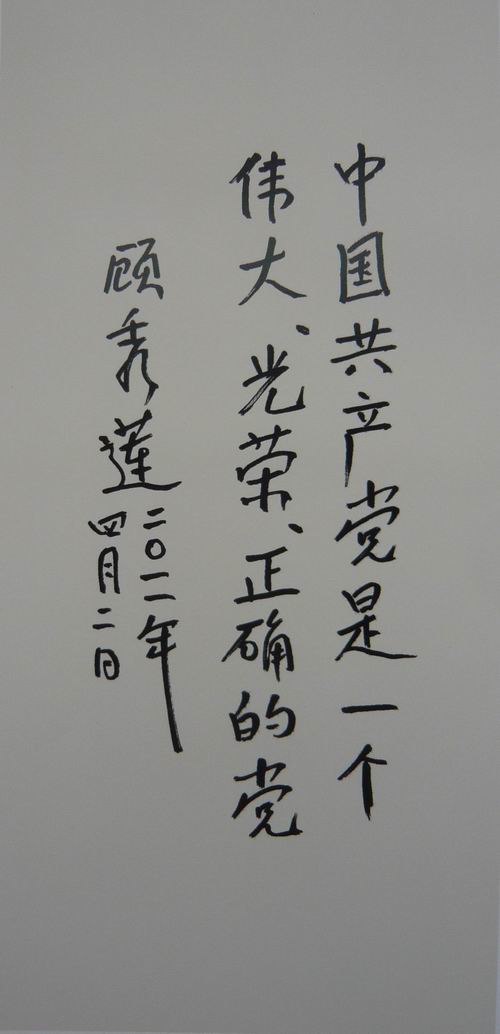 中国共产党是一个
伟大、光荣、正确的党
顾秀莲
二〇一一年
四月二日